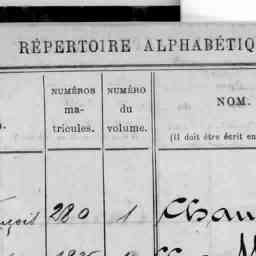 RÉPERTOIRE ALPHABÉTIQ
NUMÉROS
ma-
tricules.
NUMÉRO
du
volume.
NOM.
(Il doit être écrit en
280 1 Chau